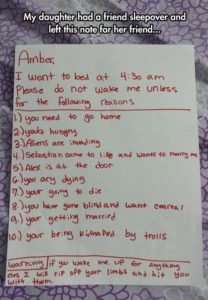 My daughter had a friend sleepover and
left this note for her friend...
Amber,
I went to bed at 4:30 am
Please do not wake me unless
for the following reasons
1.) you need to go home
2.) you're hungry
3.) Aliens are invading
4.) Sebastian came to life and wants to marry me
5.) Alex is at the door
6.) you are dying
7.) your going to die
8.) you have gone blind and want
9.) your getting married
10.) your being kidnaped by trolls
warning/ if you wake me up for anything
I will rip off your limbs and hit you
with them.